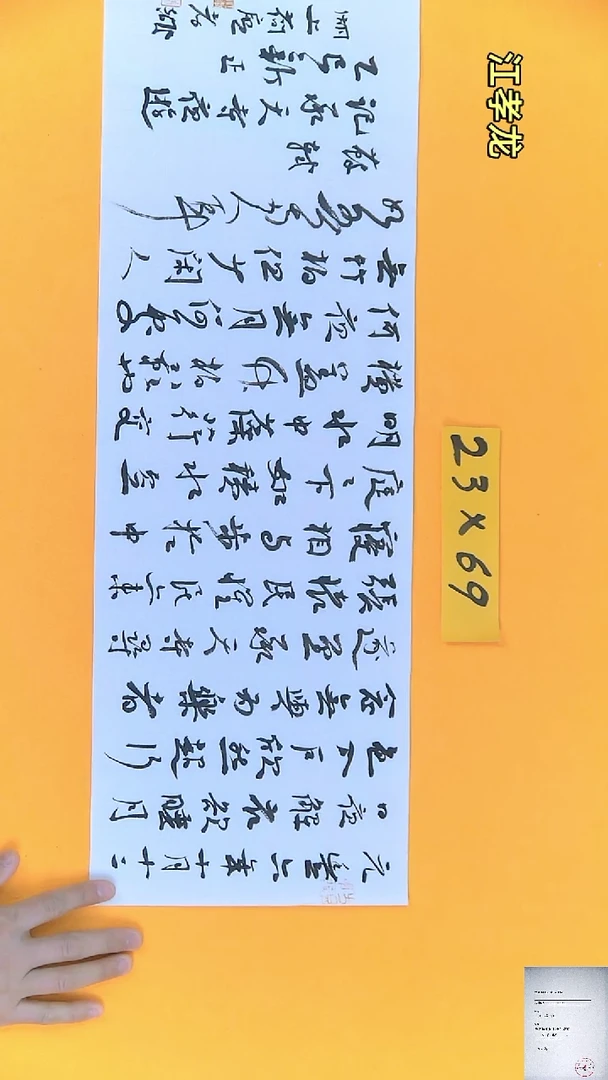 元豐六年十月十二
日夜解衣欲睡月
色入户欣然起行
念無與為樂者
遂至承天寺尋
張懷民懷民亦未
寢相與步於中
庭〻下如積水空
明水中藻荇交
橫蓋竹柏影也
何夜無月何處
無竹柏但少閑人
如吾兩人耳
蘇軾
記承天寺夜遊
乙巳新正
江孝龙
23×69